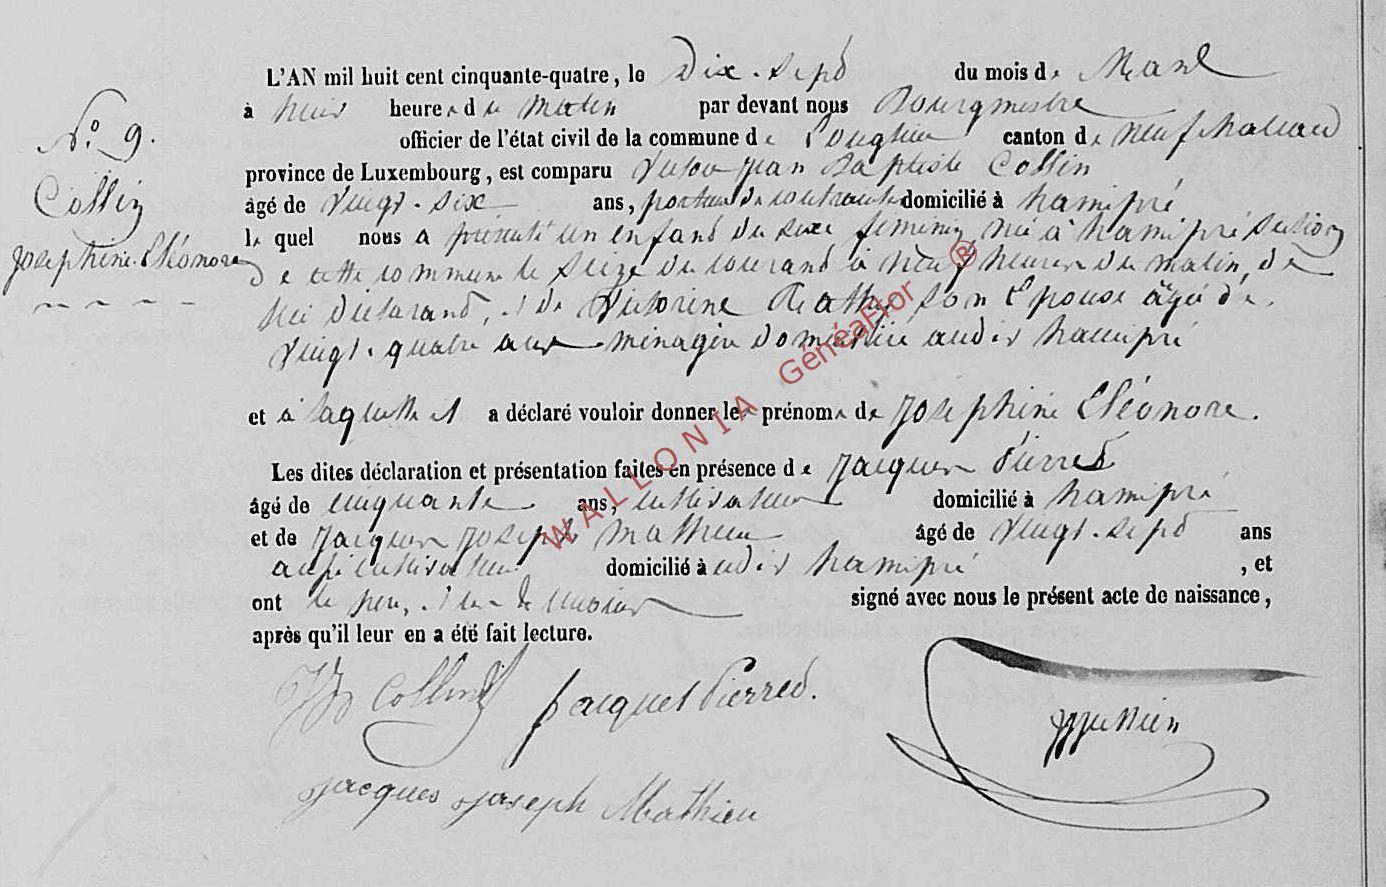 N.º 9.
Collin
Josephine Eléonore
L'AN mil huit cent cinquante-quatre, le Dix-sept du mois de Mars
à heures du matin par devant nous Bourgmestre
officier de l'état civil de la commune de Longlier canton de neufchateau
province de Luxembourg, est comparu Jean Baptiste Collin
âgé de vingt-six ans, porteur de contraintes domicilié à hamipré
le quel nous a présenté un enfant du sexe feminin, née à hamipré section
de cette commune le seize du courant à neuf heures du matin, de
lui déclarant, et de Victorine son Epouse âgée de
vingt-quatre ans ménagère domiciliée audit hamipré
et à laquelle il a déclaré vouloir donner les prénoms de Joséphine Eléonore.
Les dites déclaration et présentation faites en présence de Jacques Pierred
âgé de cinquante ans, cultivateur domicilié à hamipré
et de Jacques Joseph mathieu âgé de vingt-sept ans
aussi cultivateur domicilié audit hamipré, et
ont le père, et les témoins signé avec nous le présent acte de naissance,
après qu'il leur en a été fait lecture.
Collin Jacques Pierred.
Jacques Joseph Mathieu
WALLONIA GénéaFlor ®